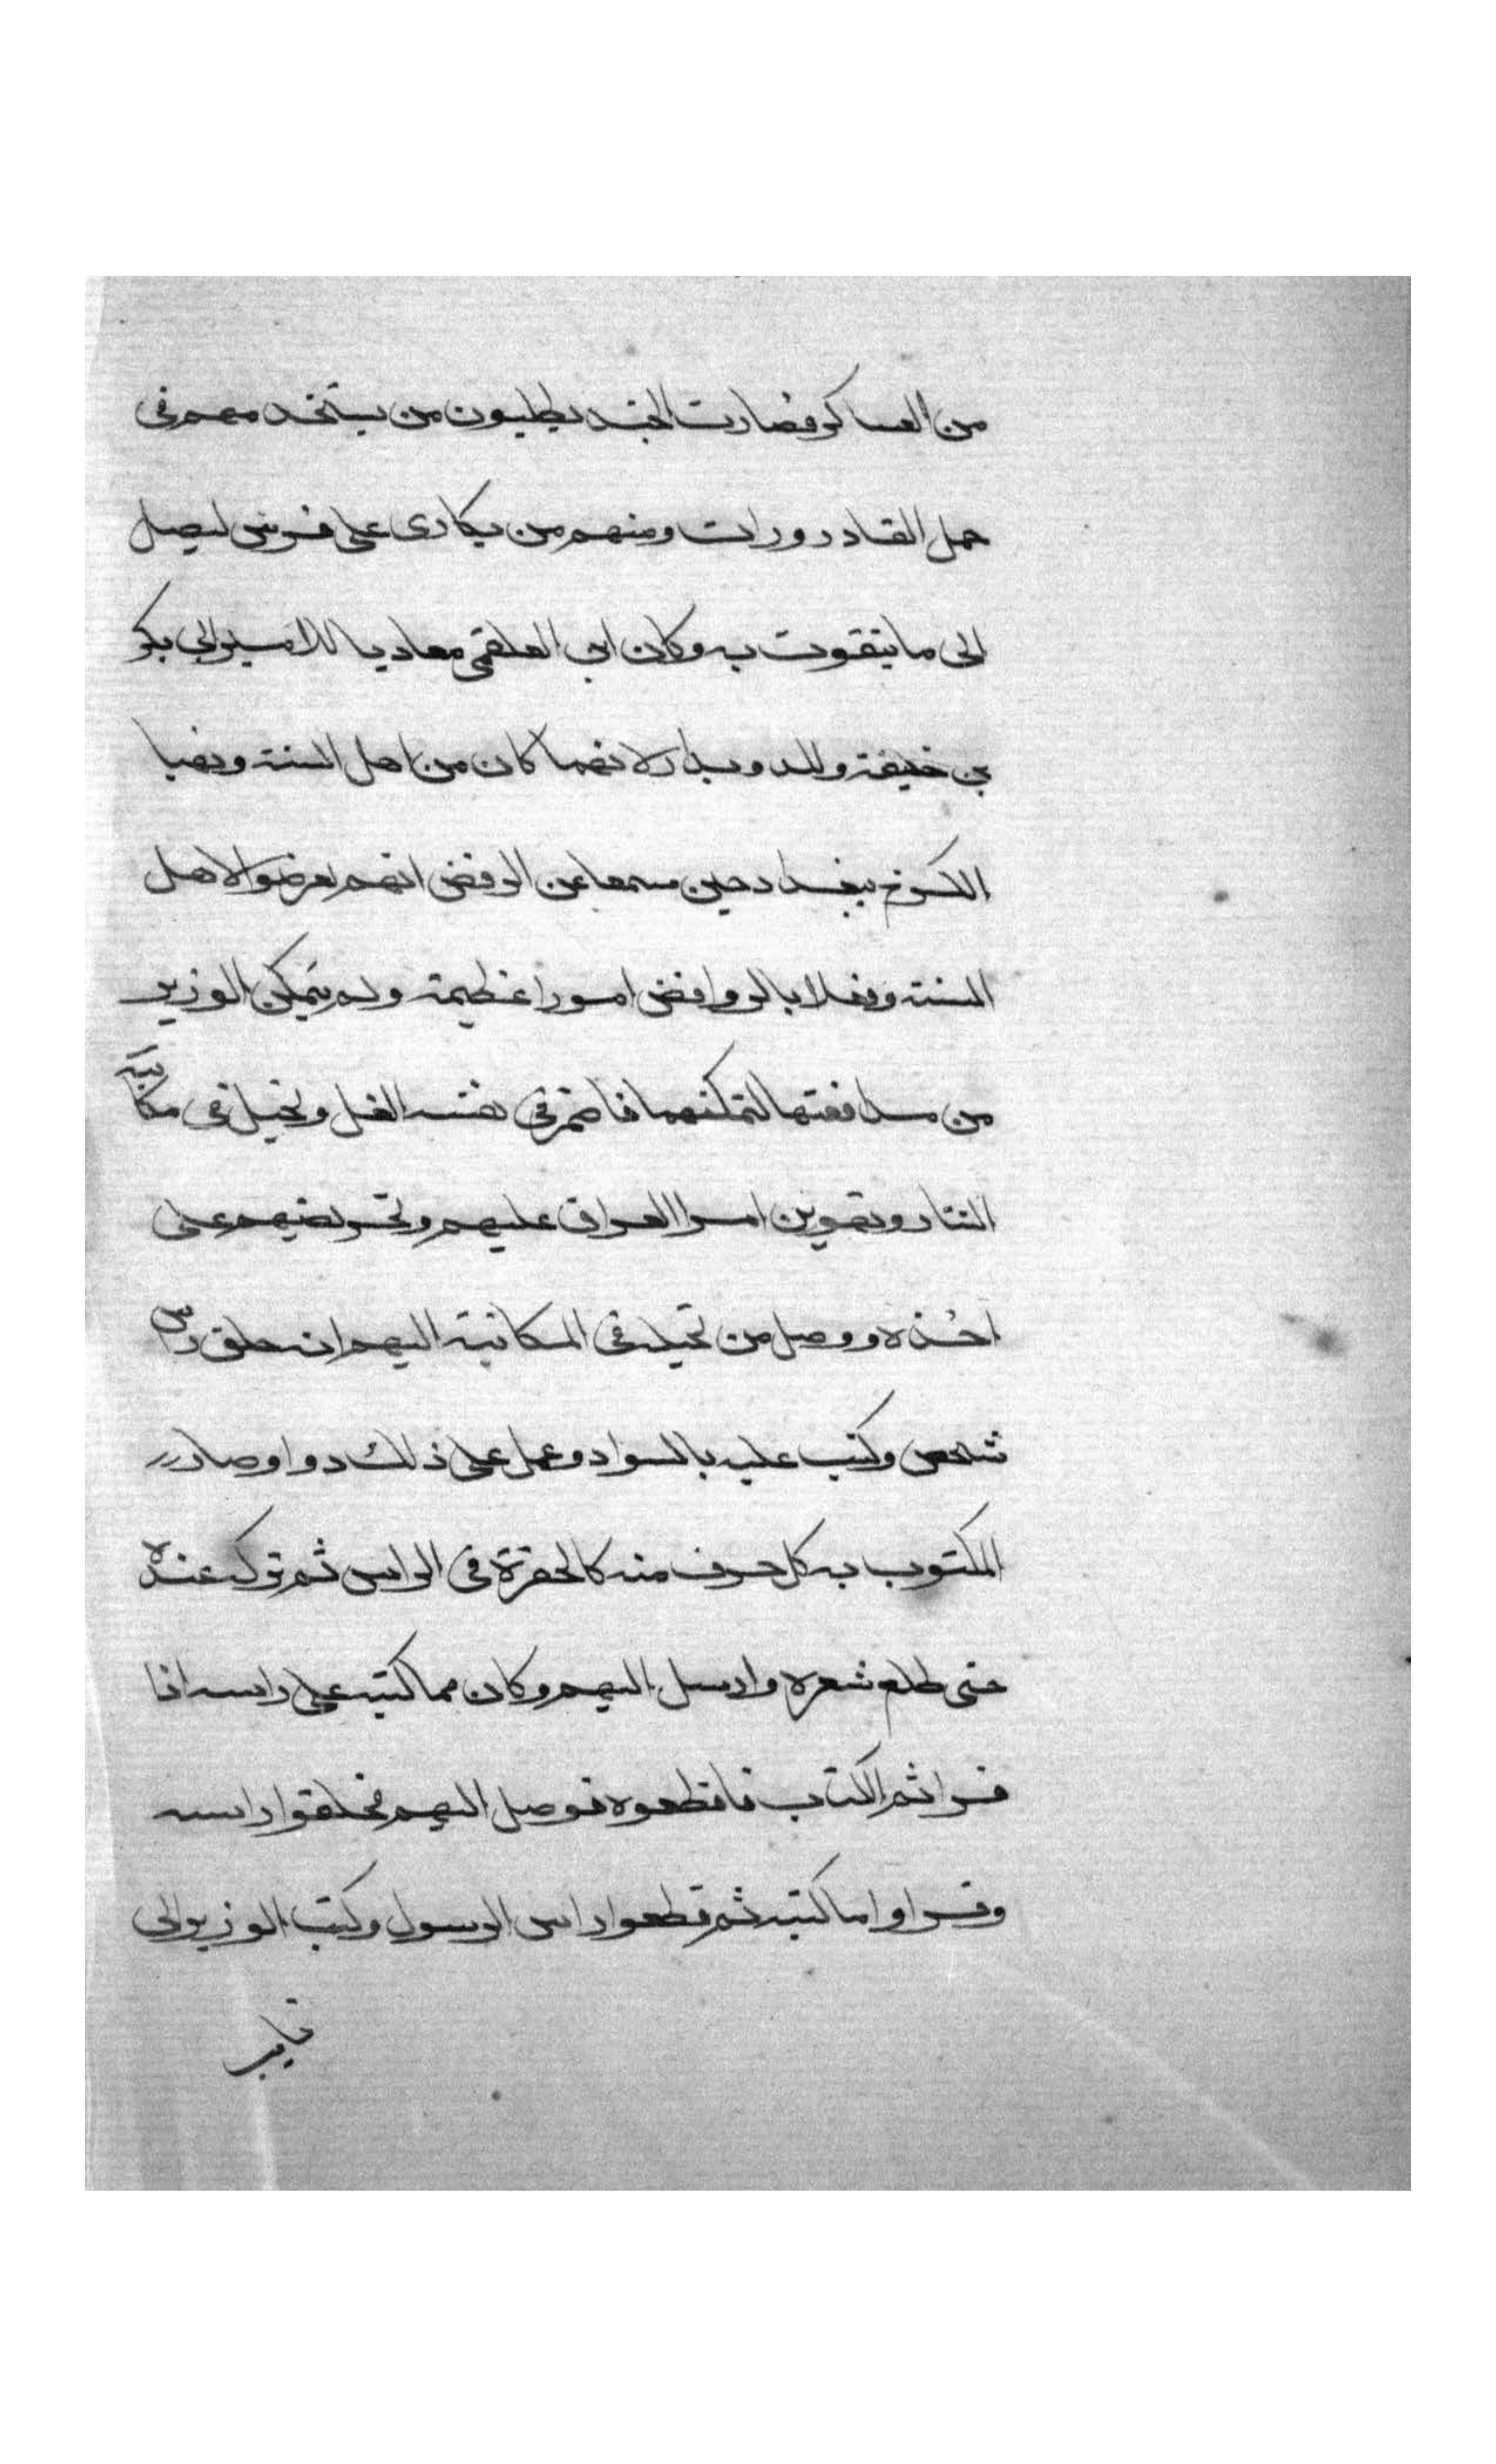 من العساكر فصارت الجند يطلبون من يستخدمهم في
حمل القادورات ومنهم من يكارى على فرسى ليصل
الى ما يتقوت به وكان ابى العلقمى معاديا للامير ابى بكر
بن خليفة وللدويدار لانهما كان من اهل السنة ونهبا
الكرخ ببغداد حين سمعا عن الرفض انهم تعرضوا لاهل
السنة وفعلا بالروافض امورا عظيمة ولم يتمكن الوزير
من مدافعتها لتمكنهما فاضمر في نفسه الغل وتحيل في مكاتبة
التتار وتهوين امر العراق عليهم وتحريضهم على
اخذه ووصل من تحيله في المكاتبة اليهم انه حلق راس
شخص وكتب عليه بالسواد وعمل على ذلك دوا وصار
المكتوب به كل حرف منه كالحفرة في الراس ثم تركه عنده
حتى طلع شعره وارسل اليهم وكان مما كتبه على راسه اذا
قراتم الكتاب فاقطعوه فوصل اليهم فحلقوا راسه
وقراوا ما كتبه ثم قطعوا راس الرسول وكتب الوزير الى